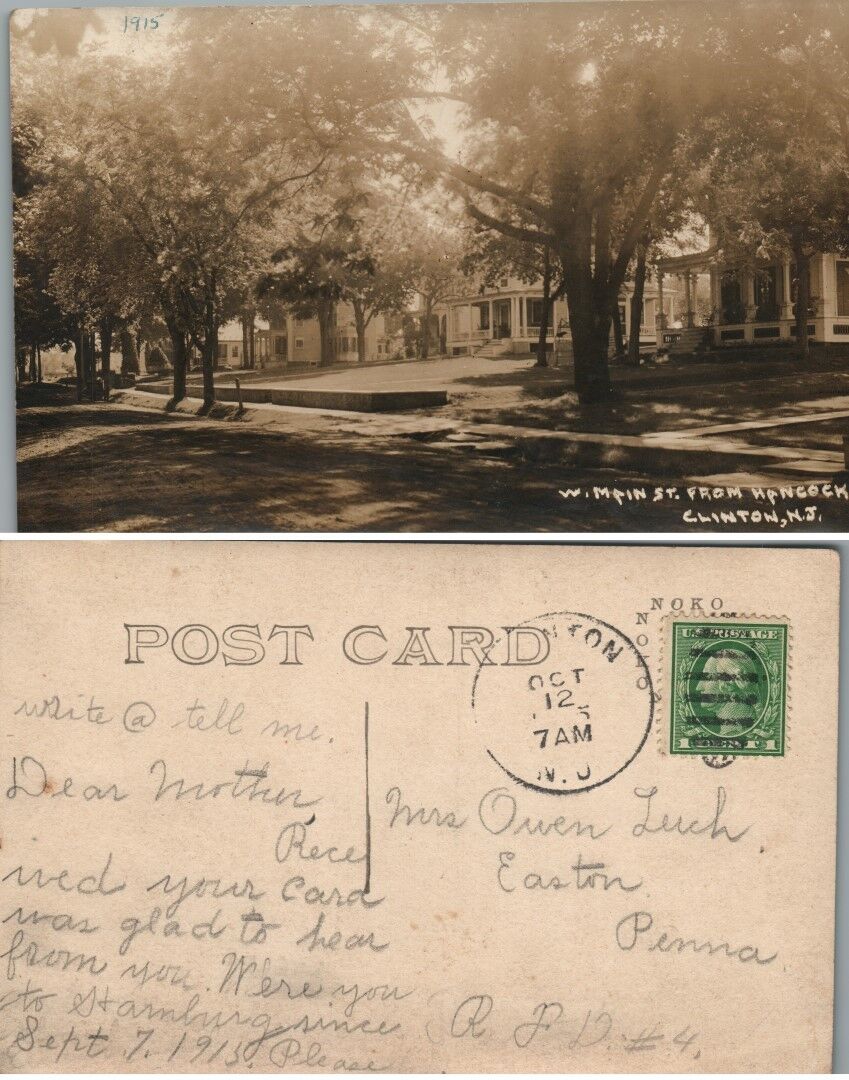 1915
W. MAIN ST. FROM HANCOCK
CLINTON, N.J.
POST CARD
NOKO
NOKO
OCT
12
7AM
N.J
U.S. POSTAGE
1 CENT 1
write @ tell me.
Dear Mother,
Rece
ived your card
was glad to hear
from you. Were you
to Hamburg since
Sept. 7. 1915. Please
Mrs Owen
Easton.
Penna.
R. F. D. #4.